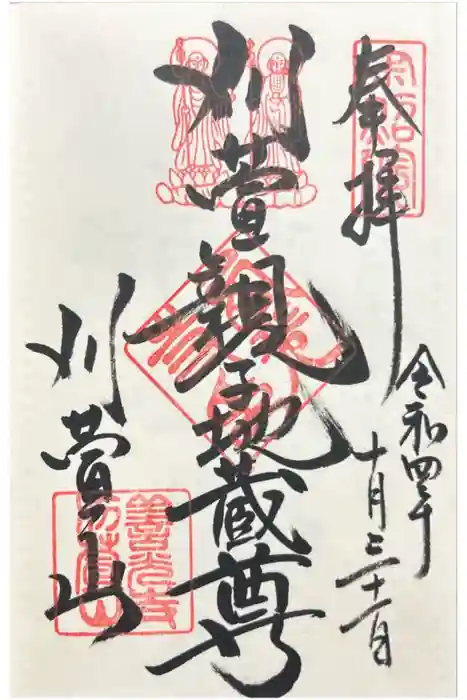 奉拝
令和四年
十月三十一日
刈萱親子地蔵尊
刈萱山
善光寺
刈萱山